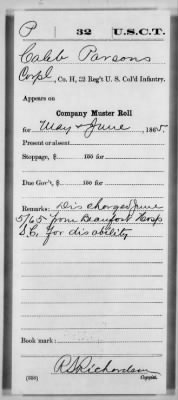 P 32 U.S.C.T.
Caleb Parsons
Corpl, Co. H, 32 Reg't U. S. Col'd Infantry.
Appears on
Company Muster Roll
for May & June, 1865.
Present or absent
Stoppage, $ 100 for
Due Gov't, $ 100 for
Remarks: Discharged June
5/65 from Beaufort Hosp
S.C. for disability
Book mark:
R S Richardson
(358) Copyist.